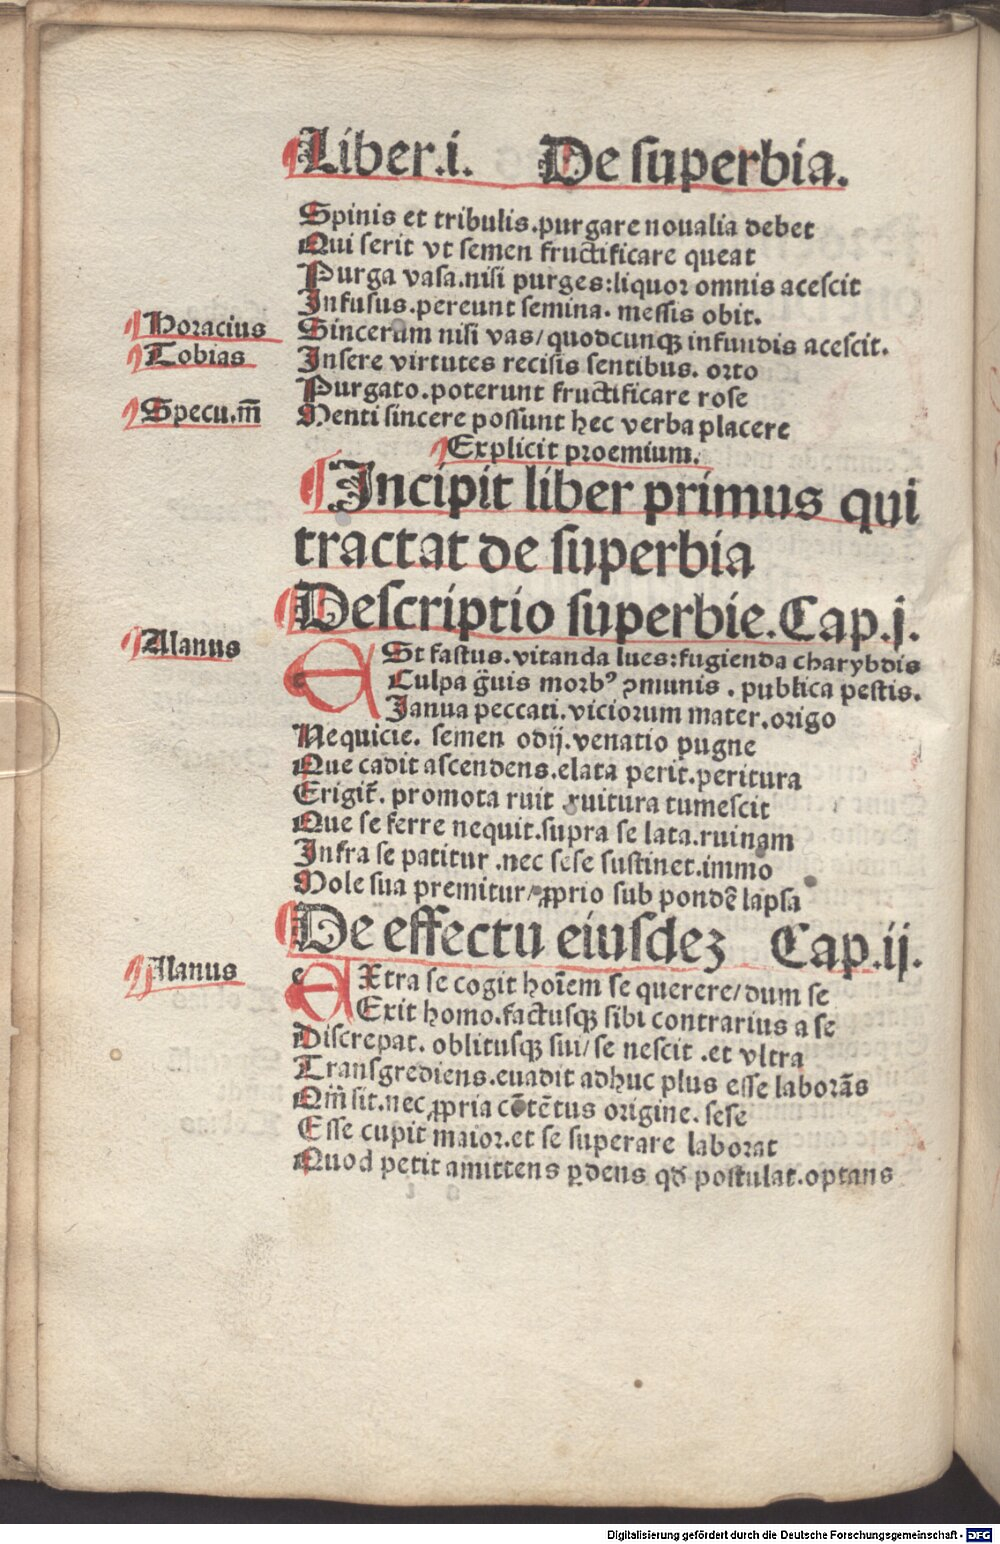 Liber.i. De superbia.
Spinis et tribulis.purgare noualia debet
Qui serit vt semen fructificare queat
Purga vasa.nisi purges:liquor omnis acescit
Infusus.pereunt semina. messis obit.
Horacius
Sincerum nisi vas/quodcunqꝫ infundis acescit.
Tobias
Insere virtutes recisis sentibus. orto
Purgato.poterunt fructificare rose
Specu.m̅
Menti sincere possunt hec verba placere
Explicit proemium.
Incipit liber primus qui
tractat de superbia
Descriptio superbie.Cap.j.
Alanus
eSt fastus.vitanda lues:fugienda charybdis
Culpa g̈uis morbꝰ ꝯmunis . publica pestis.
Janua peccati.viciorum mater.origo
Nequicie. semen odij.venatio pugne
Que cadit ascendens.elata perit.peritura
Erigit̄. promota ruit ruitura tumescit
Que se ferre nequit.supra se lata.ruinam
Infra se patitur .nec sese sustinet.immo
Mole sua premitur/ꝓprio sub pondē lapsa
De effectu eiusdeꝫ Cap.ij.
Alanus
eXtra se cogit hoīem se querere/dum se
Exit homo.factusqꝫ sibi contrarius a se
Discrepat. oblitusqꝫ sui/se nescit .et vltra
Transgrediens.euadit adhuc plus esse laborās
Qm̄ sit.nec ꝓpria cōtētus origine. sese
Esse cupit maior.et se superare laborat
Quod petit amittens ꝑdens qđ postulat.optans
Digitalisierung gefördert durch die Deutsche Forschungsgemeinschaft - DFG